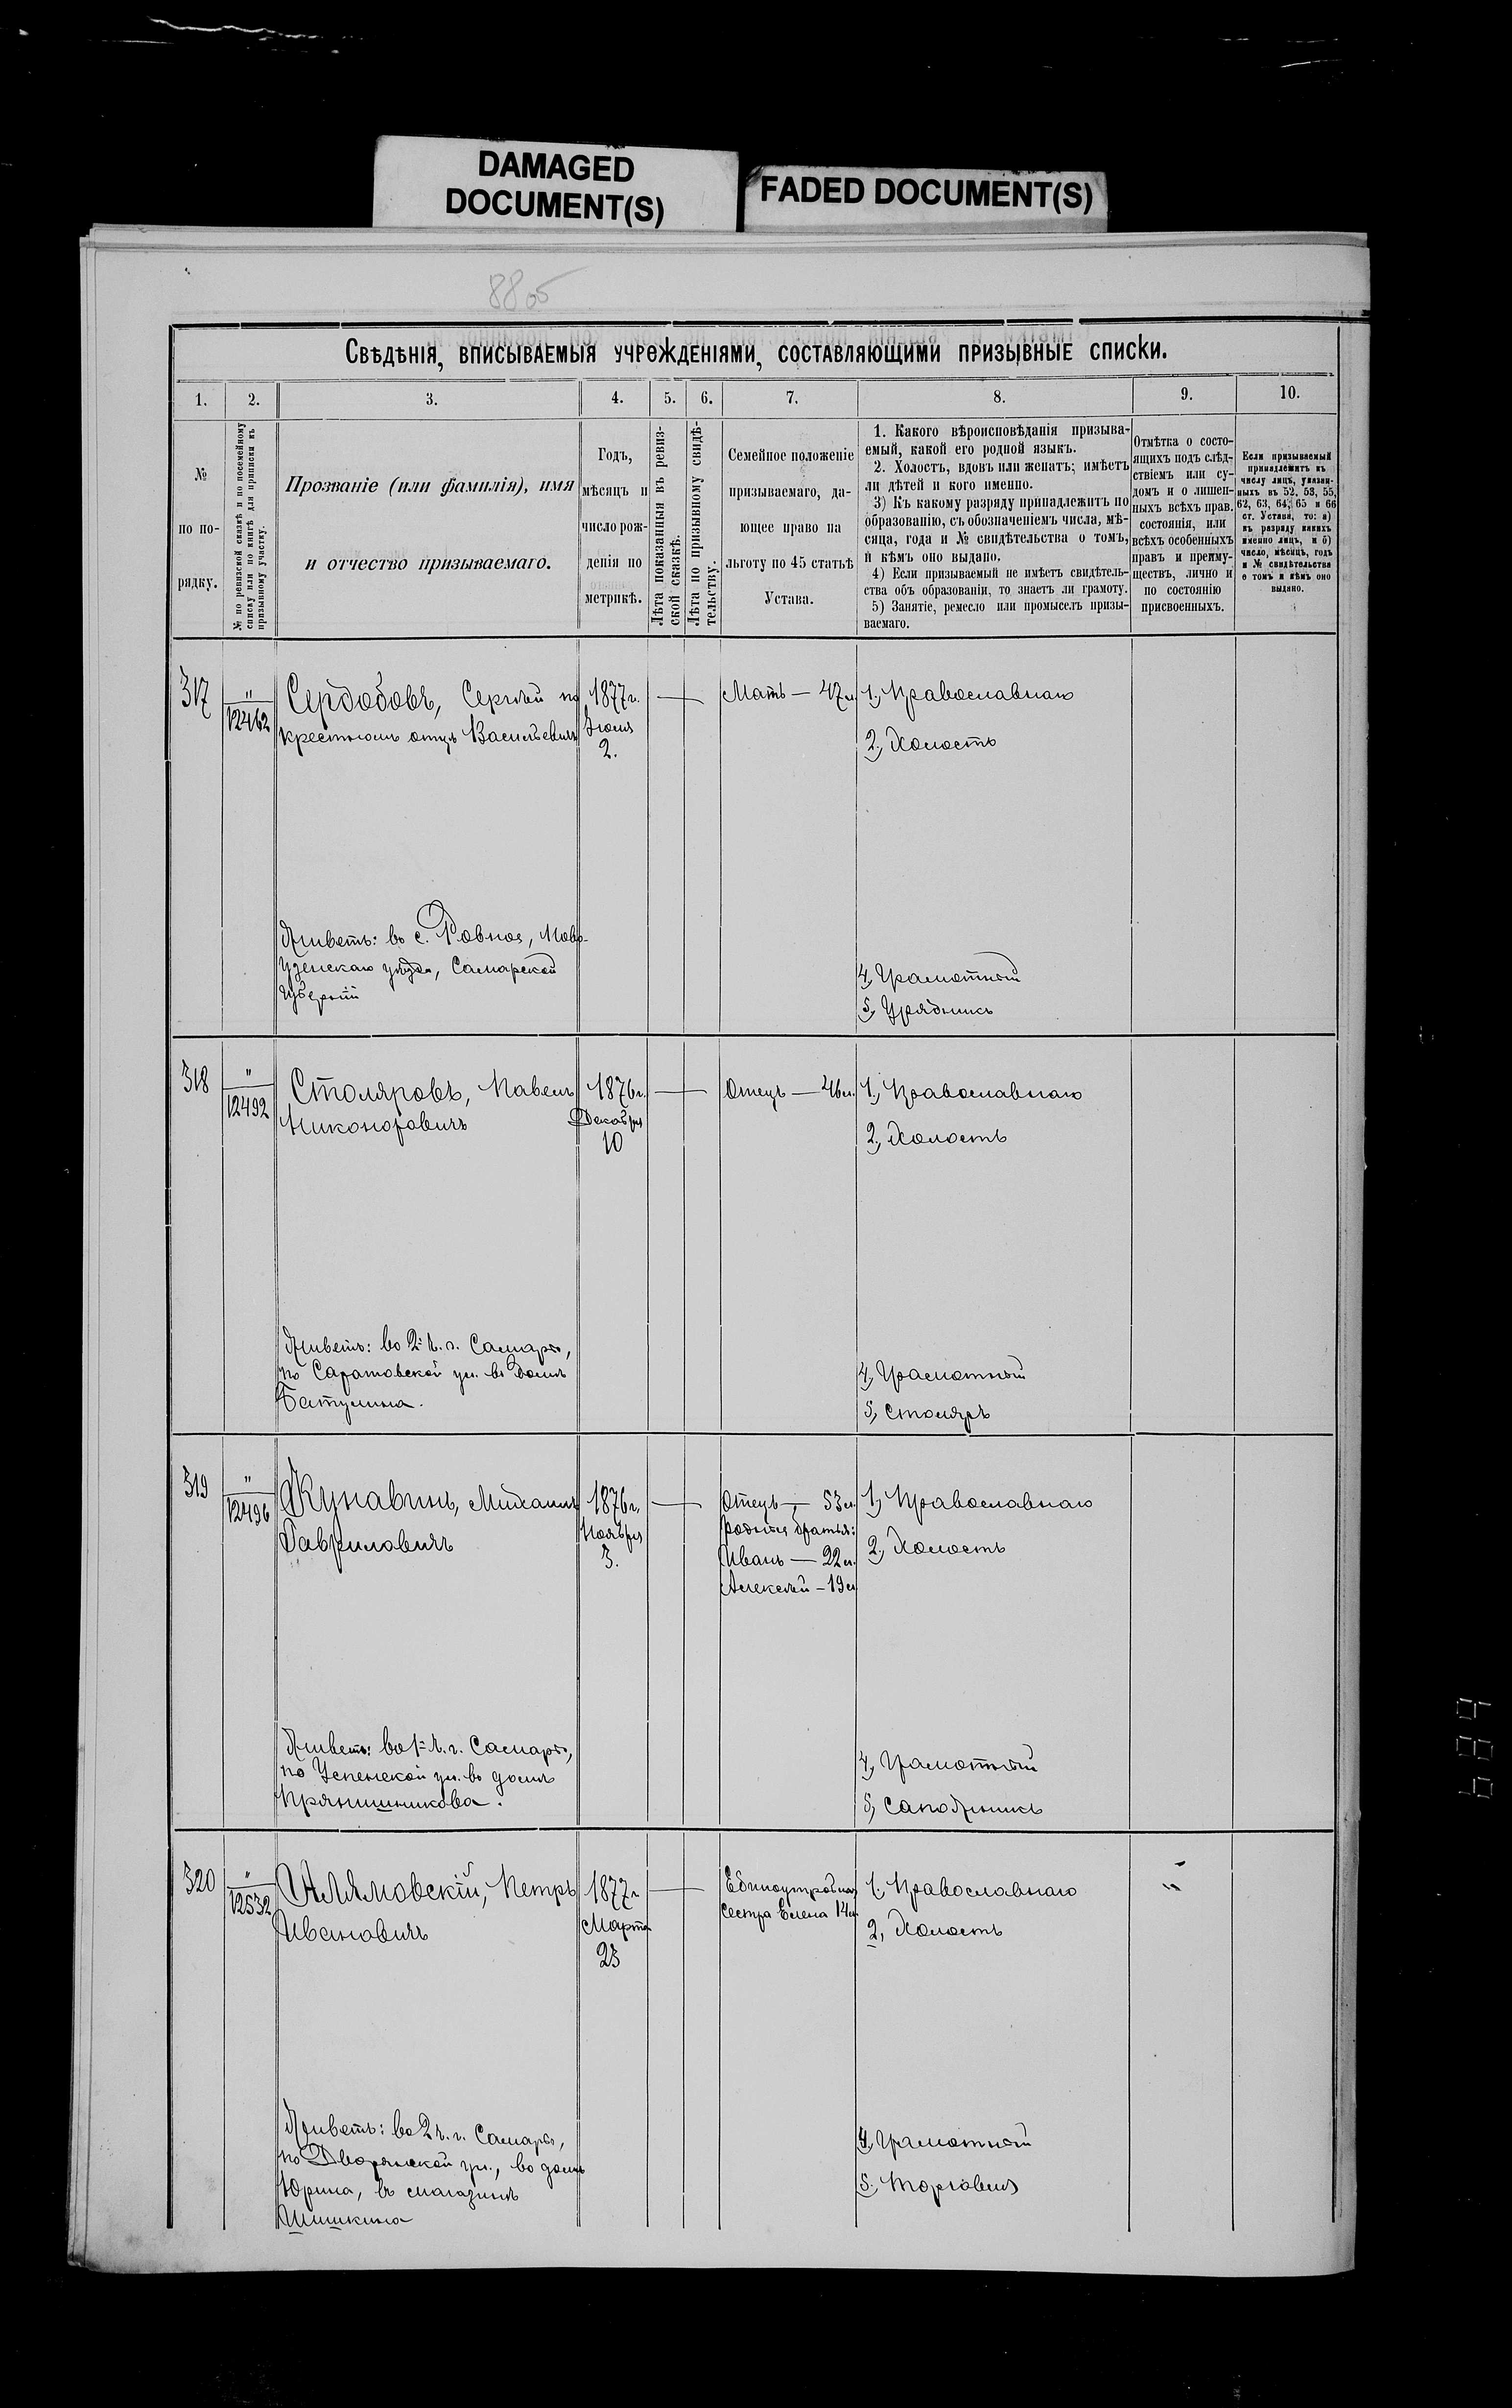 DAMAGED
DOCUMENT(S)
FADED DOCUMENT(S)
8805
Свѣдѣнія, вписываемыя учрежденіями, составляющими призывные списки.
1. 2. 3. 4. 5. 6. 7. 8. 9. 10.
№
по по-
рядку.
№ по ревизской сказкѣ и по посемейному
списку или по книгѣ для приписки къ
призывному участку.
Прозваніе (или фамилія), имя
и отчество призываемаго.
Годъ,
мѣсяцъ и
число рож-
денія по
метрикѣ.
Лѣта показанныя въ ревиз-
ской сказкѣ.
Лѣта по призывному свидѣ-
тельству.
Семейное положеніе
призываемаго, да-
ющее право на
льготу по 45 статьѣ
Устава.
1. Какого вѣроисповѣданія призыва-
емый, какой его родной языкъ.
2. Холостъ, вдовъ или женатъ; имѣетъ
ли дѣтей и кого именно.
3) Къ какому разряду принадлежитъ по
образованію, съ обозначеніемъ числа, мѣ-
сяца, года и № свидѣтельства о томъ,
и кѣмъ оно выдано.
4) Если призываемый не имѣетъ свидѣтель-
ства объ образованіи, то знаетъ ли грамоту.
5) Занятіе, ремесло или промыселъ призы-
ваемаго.
Отмѣтка о состо-
ящихъ подъ слѣд-
ствіемъ или су-
домъ и о лишен-
ныхъ всѣхъ прав.
состоянія, или
всѣхъ особенныхъ
правъ и преиму-
ществъ, лично и
по состоянію
присвоенныхъ.
Если призываемый
принадлежитъ къ
числу лицъ, указан-
ныхъ въ 52, 53, 55,
62, 63, 64, 65 и 66
ст. Устава, то: а)
къ разряду какихъ
именно лицъ, и б)
число, мѣсяцъ, годъ
и № свидѣтельства
о томъ и кѣмъ оно
выдано.
317
"
12462
Сердобовъ, Сергѣй по
крестному отцу Васильевичъ
1877 г.
Іюля
2.
Мать — 47 л.
1., Православнаго
2., Холостъ
Живетъ: въ с. Ровное, Ново-
узенскаго уѣзда, Самарской
губерніи
4, Грамотный
5, Урядникъ
318
"
12492
Столяровъ, Павелъ
Никоноровичъ
1876 г.
Декабря
10
Отецъ — 46 л.
1., Православнаго
2., Холостъ
Живетъ: во 2 ч. г. Самары,
по Саратовской ул. въ домѣ
Батулина.
4, Грамотный
5, Столяръ
319
"
12496
Кунавинъ, Михаилъ
Гавриловичъ
1876 г.
Ноября
3.
Отецъ — 53 л.
родные братья:
Иванъ — 22 л.
Алексѣй — 19 л.
1, Православнаго
2., Холостъ
Живетъ: во 1 ч. г. Самары,
по Успенской ул. въ домѣ
Прянишникова.
4, Грамотный
5, Сапожникъ
320
"
12532
Алямовскій, Петръ
Ивановичъ
1877 г.
Марта
23
Единоутробная
сестра Елена 14 л.
1., Православнаго
2, Холостъ
Живетъ: во 2 ч. г. Самары,
по Дворянской ул., въ домѣ
Юрина, въ магазинѣ
Шишкина
4, Грамотный
5., Торговля
689